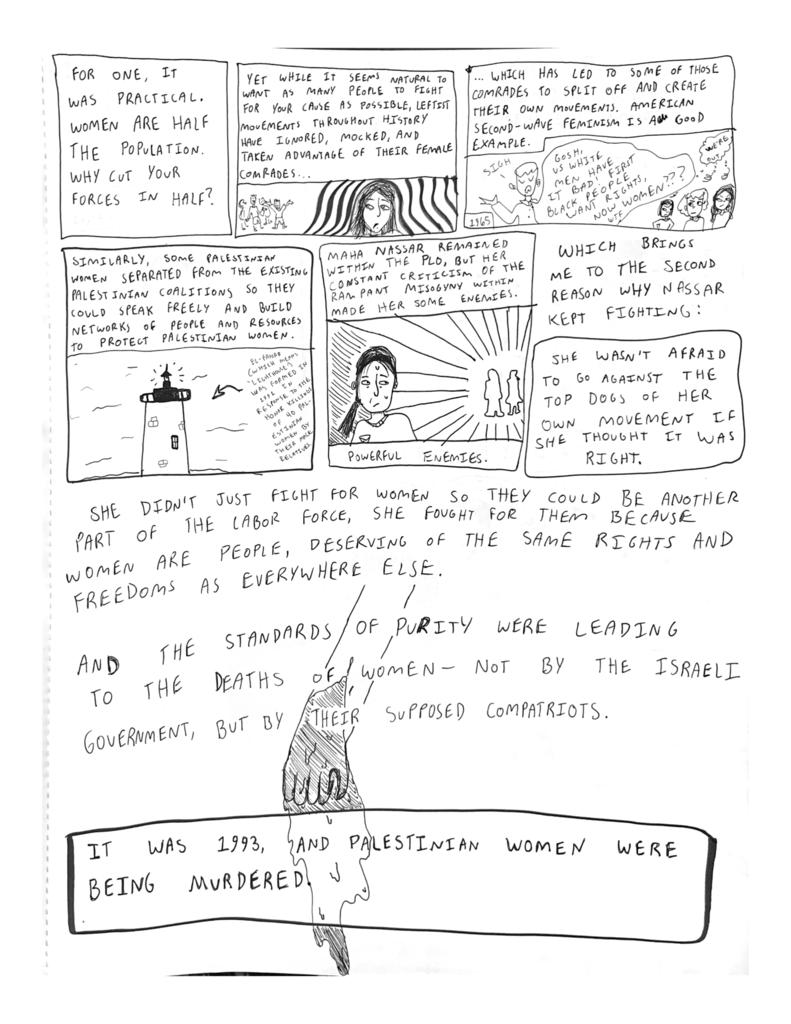 FOR ONE, IT
WAS PRACTICAL.
WOMEN ARE HALF
THE POPULATION.
WHY CUT YOUR
FORCES IN HALF?
YET WHILE IT SEEMS NATURAL TO
WANT AS MANY PEOPLE TO FIGHT
FOR YOUR CAUSE AS POSSIBLE, LEFTIST
MOVEMENTS THROUGHOUT HISTORY
HAVE IGNORED, MOCKED, AND
TAKEN ADVANTAGE OF THEIR FEMALE
COMRADES...
... WHICH HAS LED TO SOME OF THOSE
COMRADES TO SPLIT OFF AND CREATE
THEIR OWN MOVEMENTS. AMERICAN
SECOND-WAVE FEMINISM IS A GOOD
EXAMPLE.
SIGH
GOSH,
US WHITE
MEN HAVE
IT BAD. FIRST
BLACK PEOPLE
WANT RIGHTS,
NOW WOMEN???
WTF
WE'RE
OUT
1965
SIMILARLY, SOME PALESTINIAN
WOMEN SEPARATED FROM THE EXISTING
PALESTINIAN COALITIONS SO THEY
COULD SPEAK FREELY AND BUILD
NETWORKS OF PEOPLE AND RESOURCES
TO PROTECT PALESTINIAN WOMEN.
(WHICH MEANS
"LIGHTHOUSE")
WAS FORMED IN
IN
RESPONSE TO THE
HONOR KILLINGS
OF 40 PAL-
ESTINIAN
WOMEN BY
THEIR MALE
RELATIVES.
MAHA NASSAR REMAINED
WITHIN THE PLO, BUT HER
CONSTANT CRITICISM OF THE
RAMPANT MISOGYNY WITHIN
MADE HER SOME ENEMIES.
POWERFUL ENEMIES.
WHICH BRINGS
ME TO THE SECOND
REASON WHY NASSAR
KEPT FIGHTING:
SHE WASN'T AFRAID
TO GO AGAINST THE
TOP DOGS OF HER
OWN MOVEMENT IF
SHE THOUGHT IT WAS
RIGHT.
SHE DIDN'T JUST FIGHT FOR WOMEN SO THEY COULD BE ANOTHER
PART OF THE LABOR FORCE, SHE FOUGHT FOR THEM BECAUSE
WOMEN ARE PEOPLE, DESERVING OF THE SAME RIGHTS AND
FREEDOMS AS EVERYWHERE ELSE.
AND THE STANDARDS OF PURITY WERE LEADING
TO THE DEATHS OF WOMEN— NOT BY THE ISRAELI
GOVERNMENT, BUT BY THEIR SUPPOSED COMPATRIOTS.
IT WAS 1993, AND PALESTINIAN WOMEN WERE
BEING MURDERED.